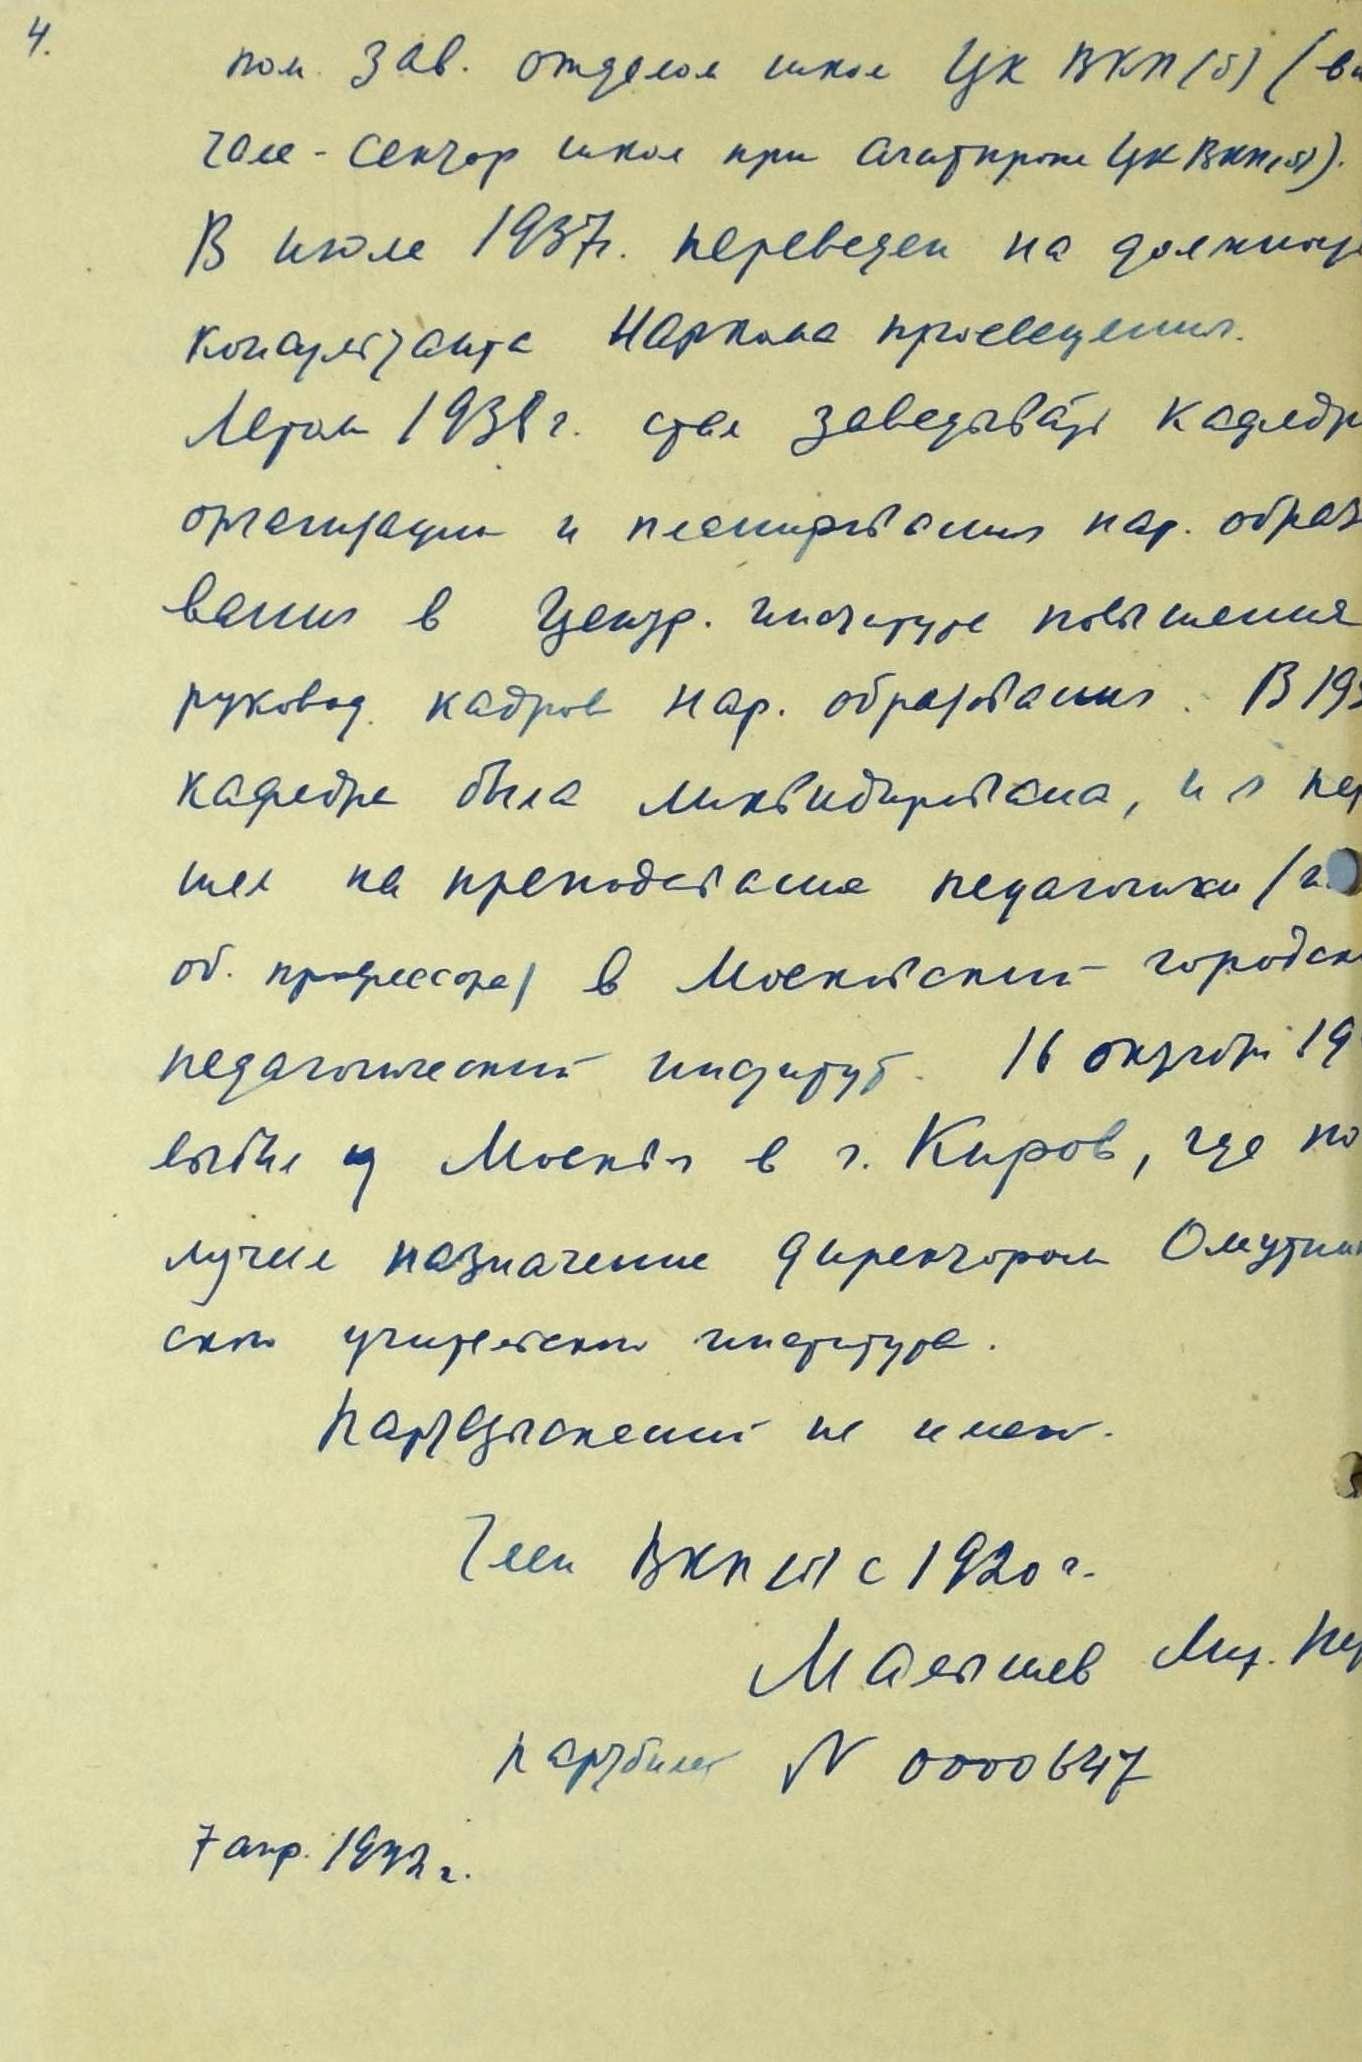 4.
пом. зав. отделом школ ЦК ВКП(б) (вна
чале - сектор школ при агитпропе ЦК ВКП(б)).
В июле 1937г. переведен на должнос
консультанта Наркома просвещения.
Летом 1938г. стал заведывать кафедр
организации и планирования нар. образ
вания в Центр. институте повышения
руковод. кадров нар. образования. В 19
кафедра была ликвидирована, и я пер
шел на преподавание педагогики (и.
об. профессора) в Московский городск
педагогический институт. 16 октября 19
выбыл из Москвы в г. Киров, где по
лучил назначение директором Омутнин
ского учительского института.
Партвзысканий не имею.
Член ВКП(б) с 1920 г.
Малышев Мих. Пе
партбилет N 0000647
7 апр. 1942 г.